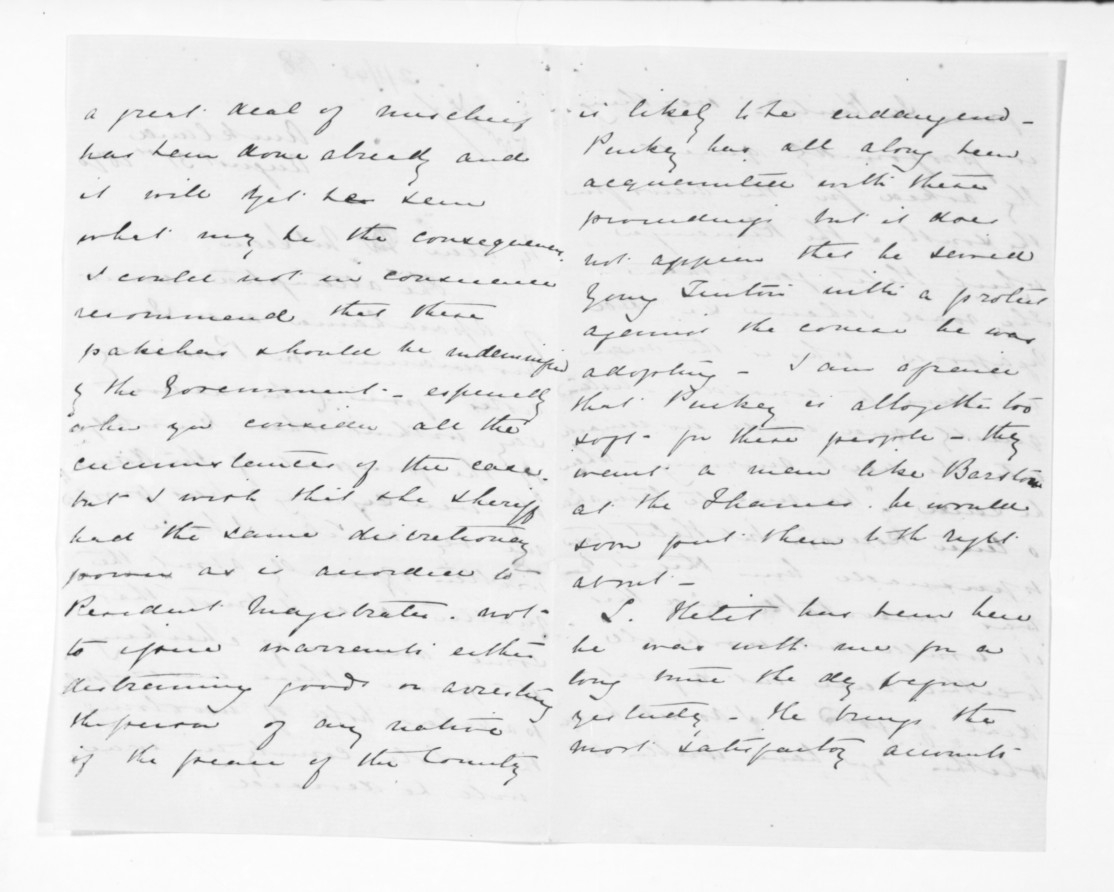 a great deal of mischief
has been done already and
it will yet be seen
what may be the consequences.
I could not in conscience
recommend that these
pakehas should be indemnified
by the Government - especially
when you consider all the
circumstances of the case.
but I wish that the Sheriff
had the same discretionary
power as is accorded to
Resident Magistrates. not
to issue warrants either
distraining goods or arresting
the person of any native
if the peace of the County
is likely to be endangered -
Puckey has all along been
acquainted with these
proceedings but it does
not appear that he served
Young with a protest
against the course he was
adopting - I am afraid
that Puckey is altogether too
soft for these people - they
want a man like Barstow
at the Thames. he would
soon put them to th right
about -
L. Hetit has been here
he was with me for a
long time the day before
yesterday - He brings the
most satisfactory accounts